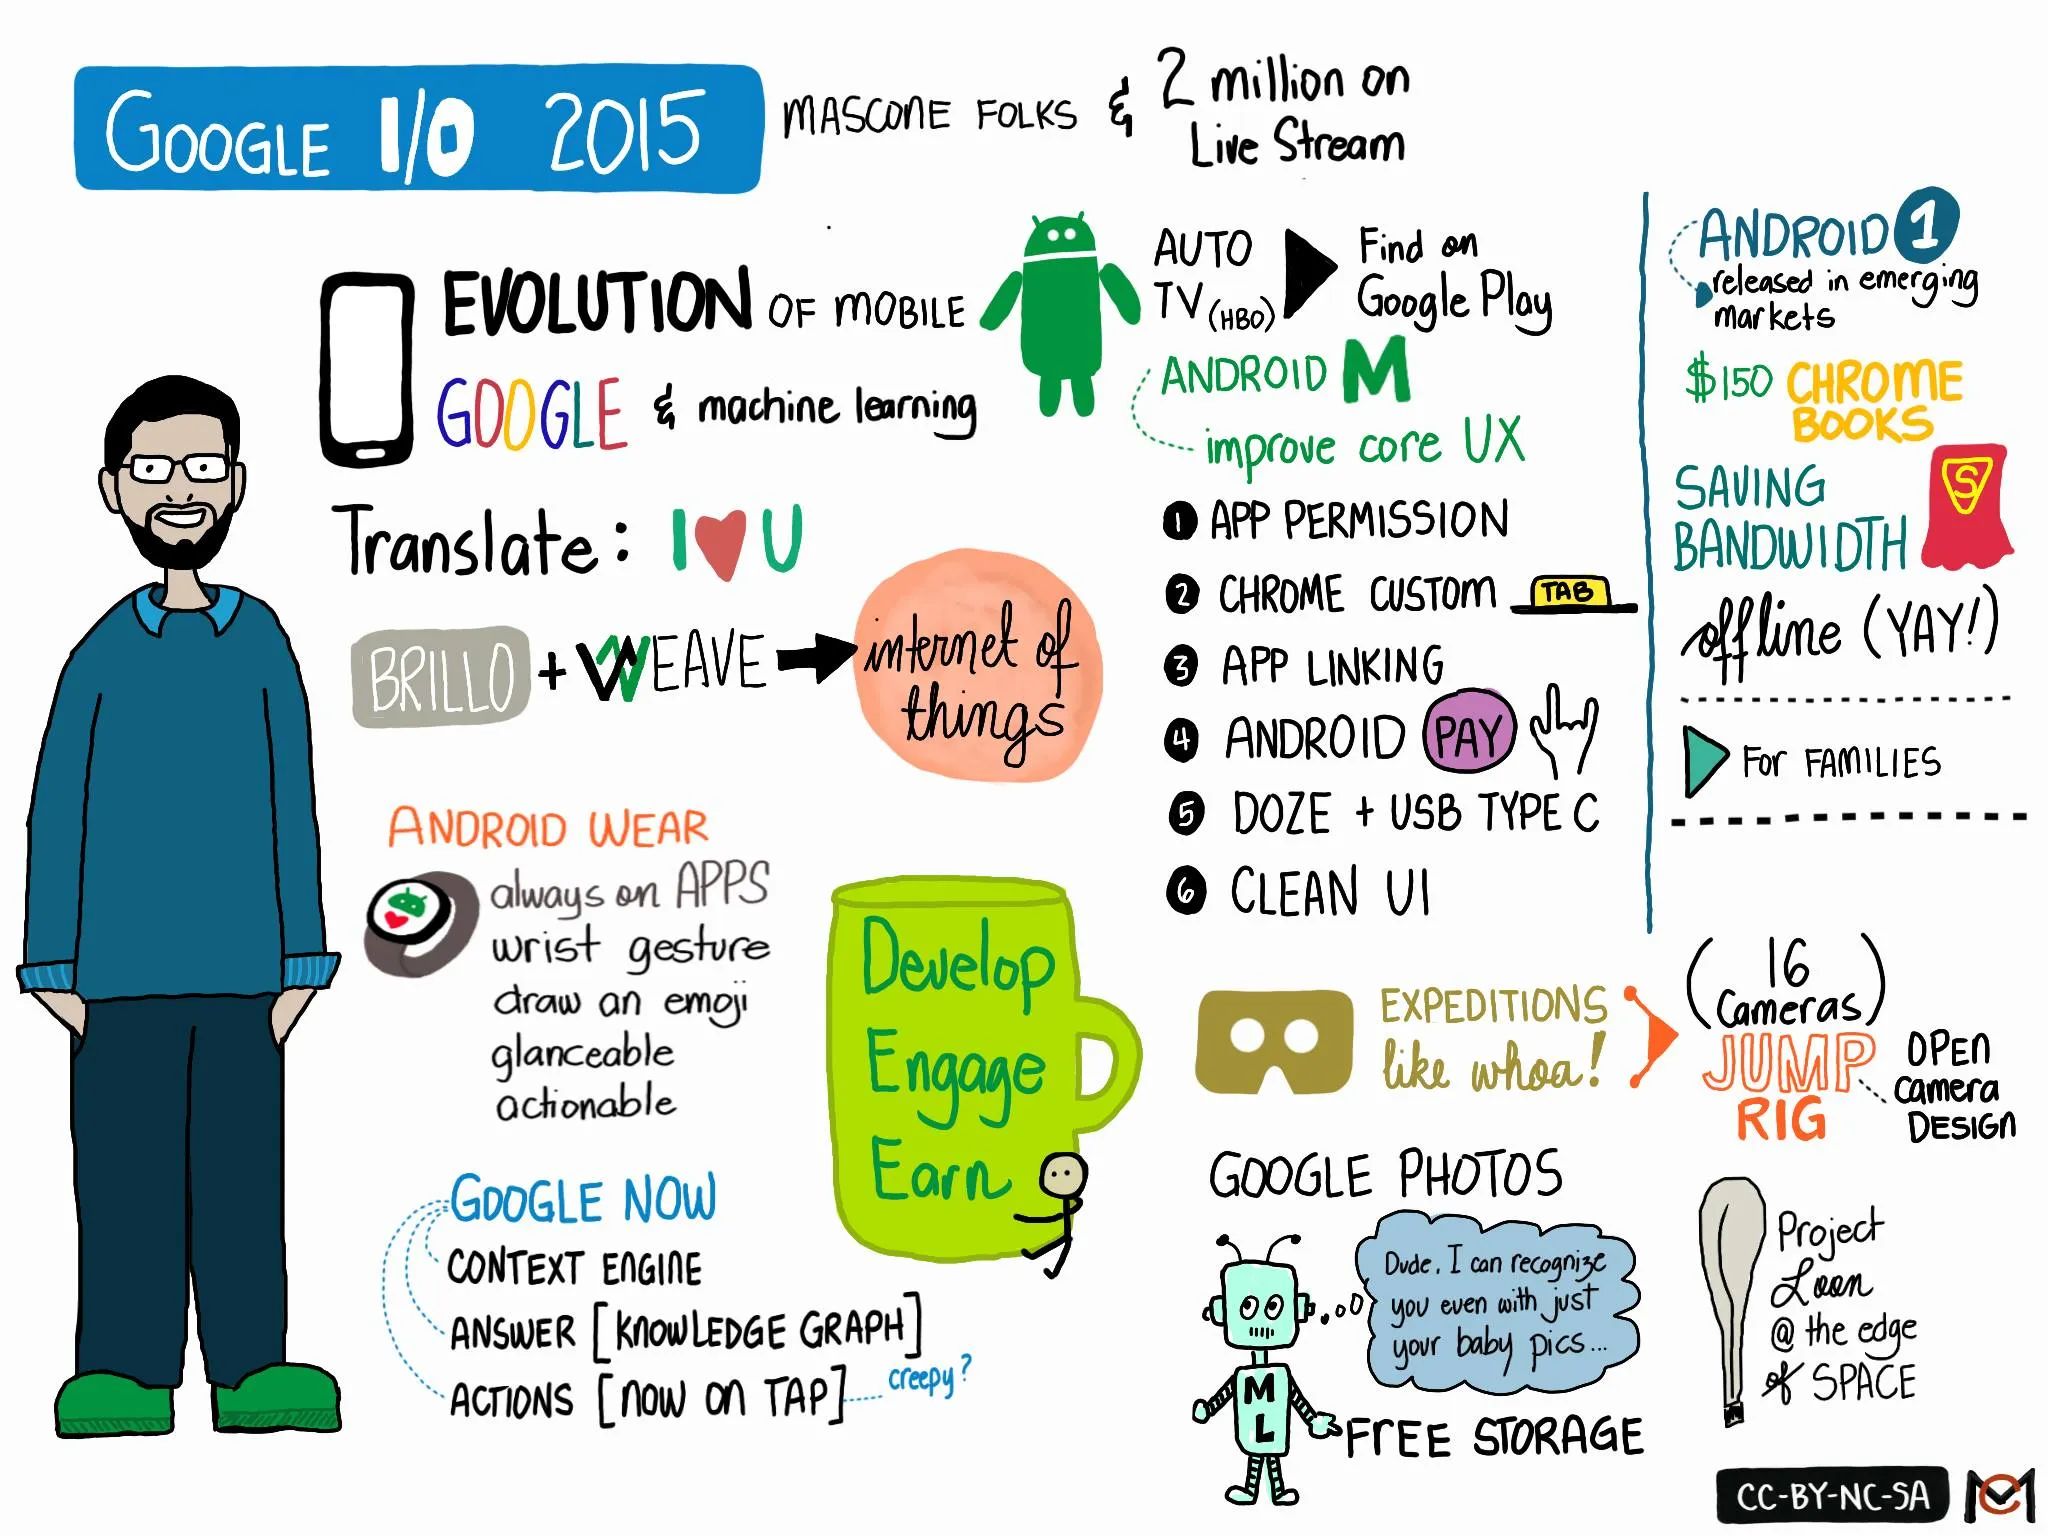 GOOGLE I/O 2015
MASCONE FOLKS & 2 million on
Live Stream
EVOLUTION OF MOBILE
GOOGLE & machine learning
Translate: I ♥ U
BRILLO + WEAVE
internet of
things
ANDROID WEAR
always on APPS
wrist gesture
draw an emoji
glanceable
actionable
GOOGLE NOW
CONTEXT ENGINE
ANSWER [KNOWLEDGE GRAPH]
ACTIONS [NOW ON TAP]
creepy?
Develop
Engage
Earn
AUTO
TV (HBO)
Find on
Google Play
ANDROID M
improve core UX
1 APP PERMISSION
2 CHROME CUSTOM TAB
3 APP LINKING
4 ANDROID PAY
5 DOZE + USB TYPE C
6 CLEAN UI
ANDROID 1
released in emerging
markets
$150 CHROME
BOOKS
SAVING
BANDWIDTH
S
offline (YAY!)
For FAMILIES
EXPEDITIONS
like whoa!
(16
Cameras)
JUMP
RIG
OPEN
Camera
DESIGN
GOOGLE PHOTOS
Dude, I can recognize
you even with just
your baby pics...
M
L
FREE STORAGE
Project
Loon
@ the edge
of SPACE
CC-BY-NC-SA